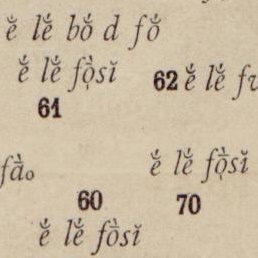 ĕ lĕ́ bŏ́ d fŏ́
ĕ́ lĕ́ fọ̄̀sĭ 62 ĕ́ lĕ́
61
fā̀o ĕ́ lĕ́ fọ̄̀sĭ
60 70
ĕ́ lĕ́ fṑsĭ